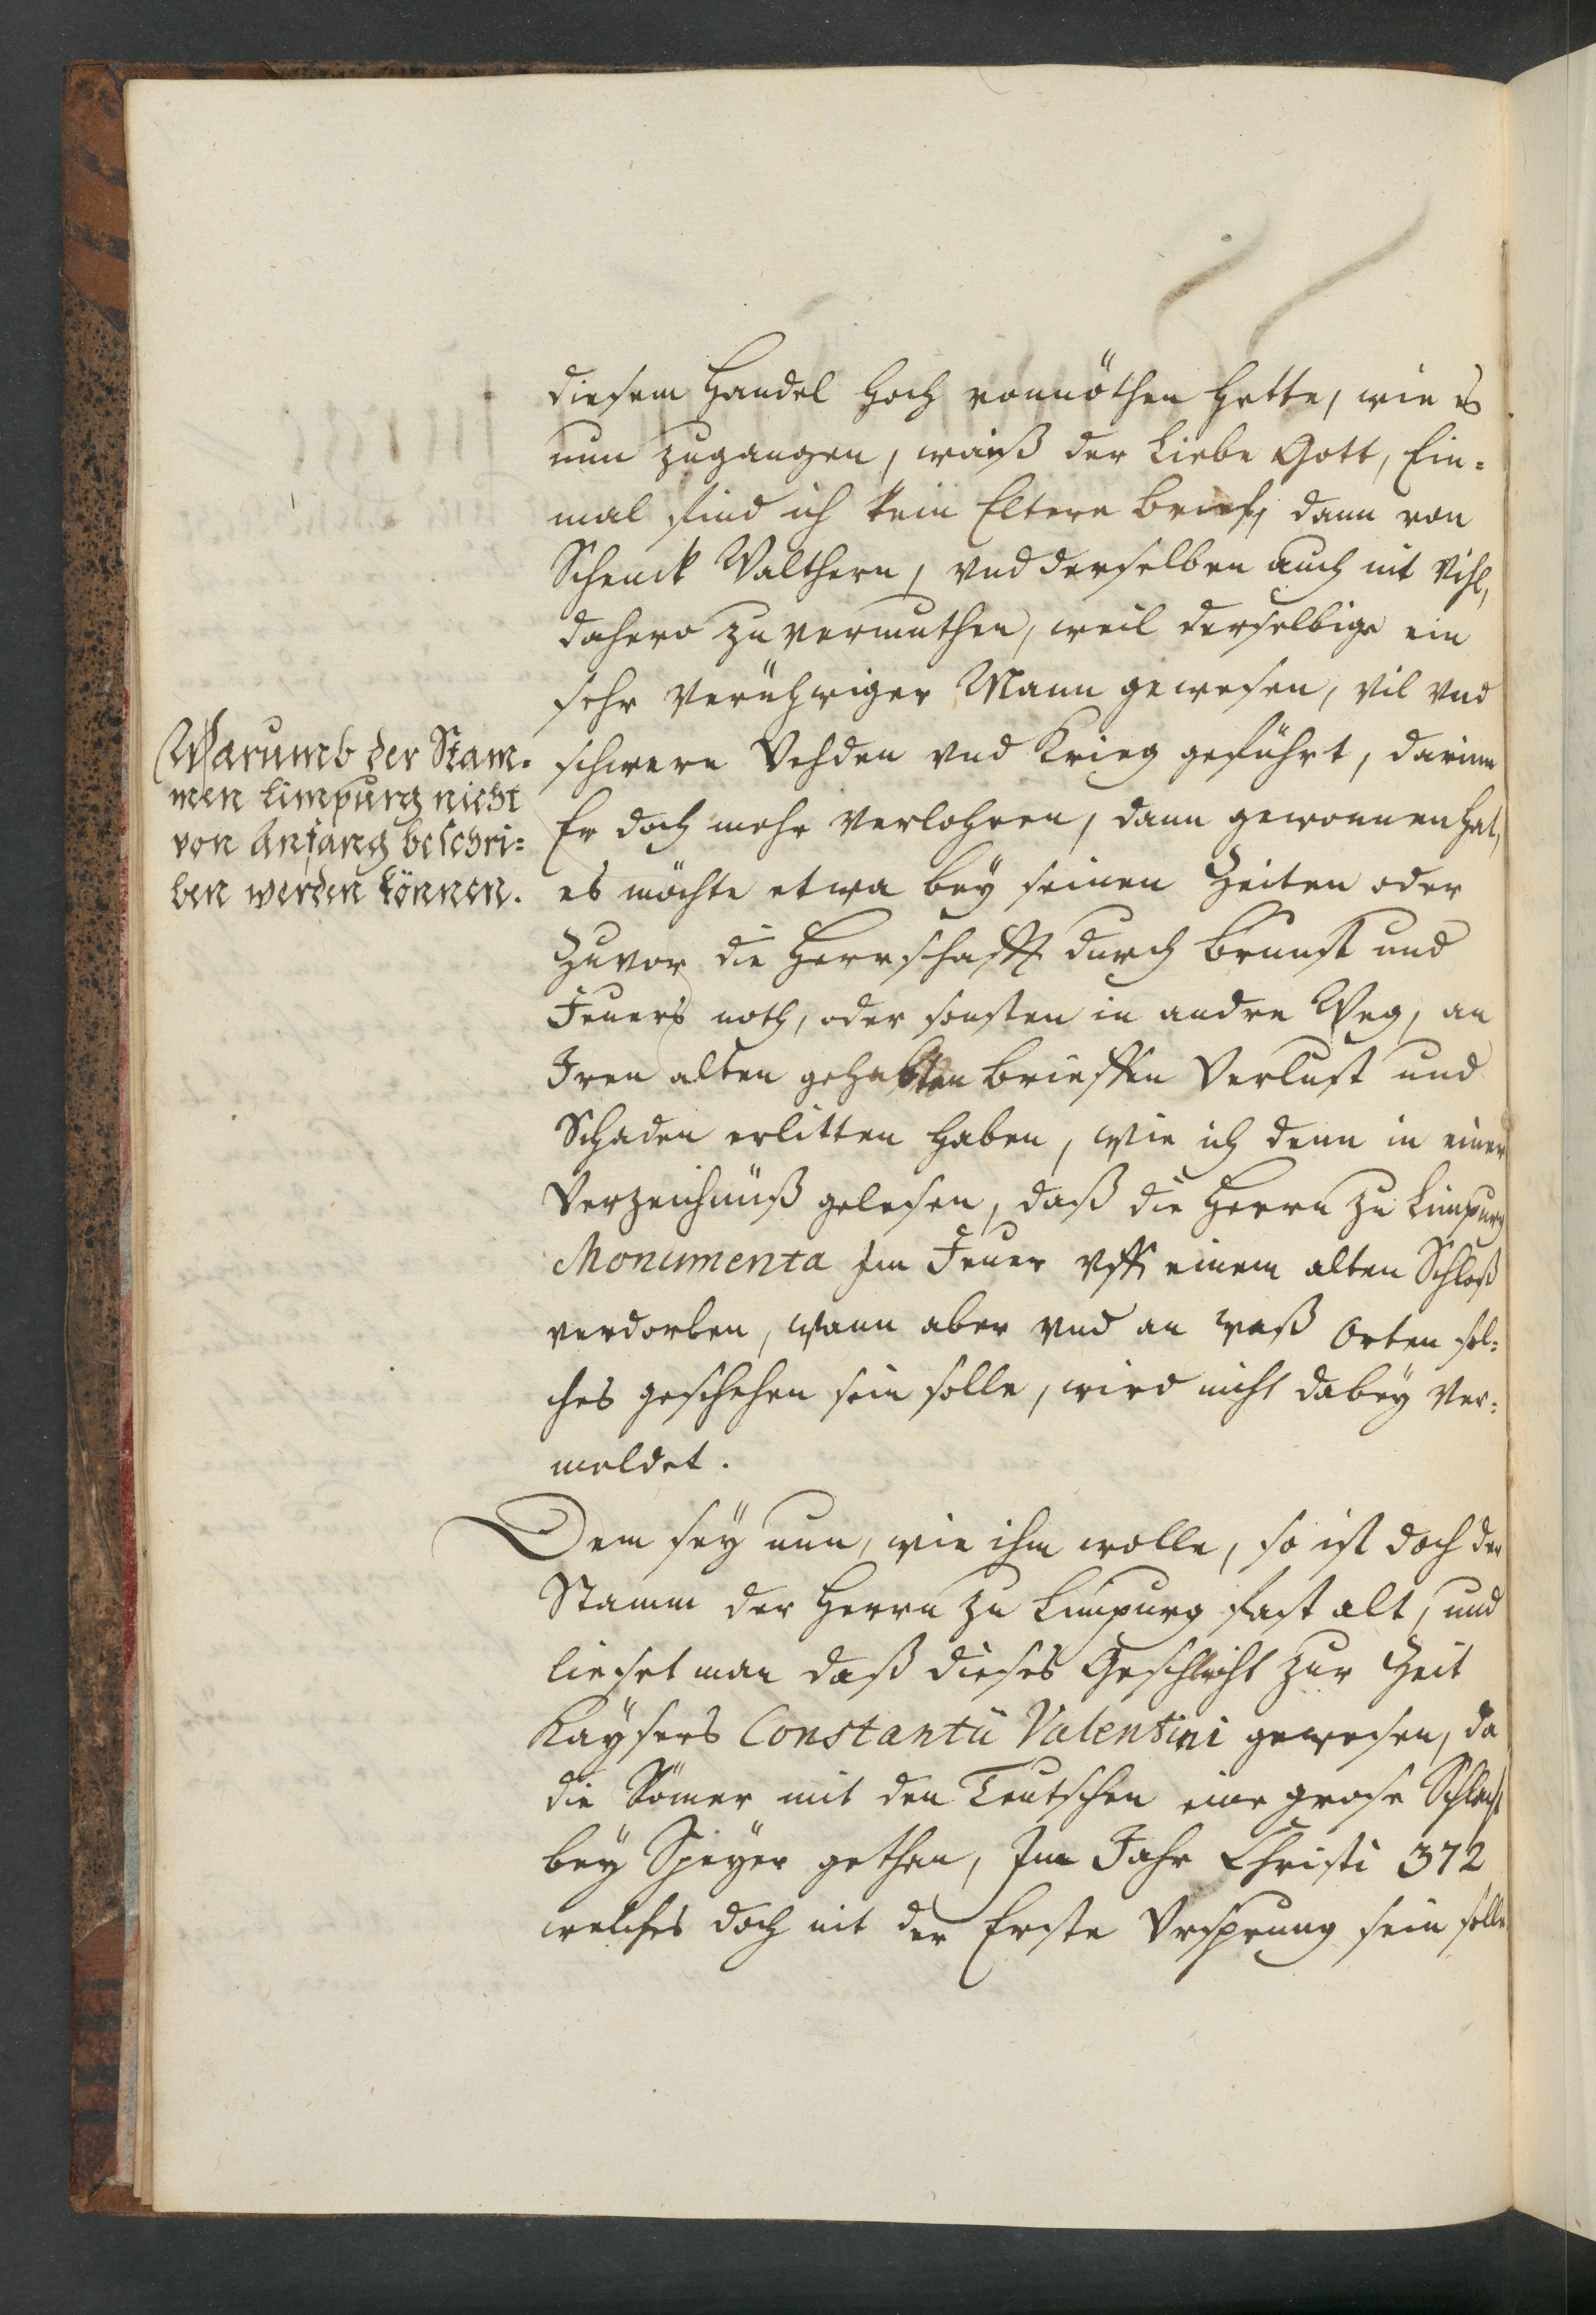 diesem Handel hoch vonnöthen hette, wie es
nun zugangen, waiß der Liebe Gott, Ein=
mal find ich kein Eltere brieff, dann von
Schenck Walthern, vnd derselben auch nit vihl,
dahero zu vermuthen, weil derselbige ein
sehr Vnrühwiger Mann gewesen, vil vnd
Warumb der Stam=
men Limpurg nicht
von Anfang beschri=
ben werden können.
schwere Vehden vnd Krieg geführt, darinn
Er doch mehr verlohren, dann gewonnen hat,
es möchte etwa bey seinen Zeiten oder
Zuvor die Herrschafft durch brunst und
Feuers noth, oder sonsten in andre Weg, an
Iren alten gehabten brieffen Verlust und
Schaden erlitten haben, wie ich denn in einer
Verzeichnüß gelesen, daß die Herrn zu Limpurg
Monumenta Im Feuer vff einem alten Schloß
verdorben, wann aber vnd an waß Orten sol=
ches geschehen sein solle, wird nicht dabey ver=
meldet.
Dem sey nun, wie ihm wolle, so ist doch der
Stamm der Herrn zu Limpurg fast alt, und
lieset man daß dieses Geschlecht zur Zeit
Kaysers Constantii Valentini gewesen, da
die Römer mit den Teutschen eine grose Schlacht
bey Speyer gethan, Im Jahr Christi 372
welches doch nit der Erste Vrsprung sein solle